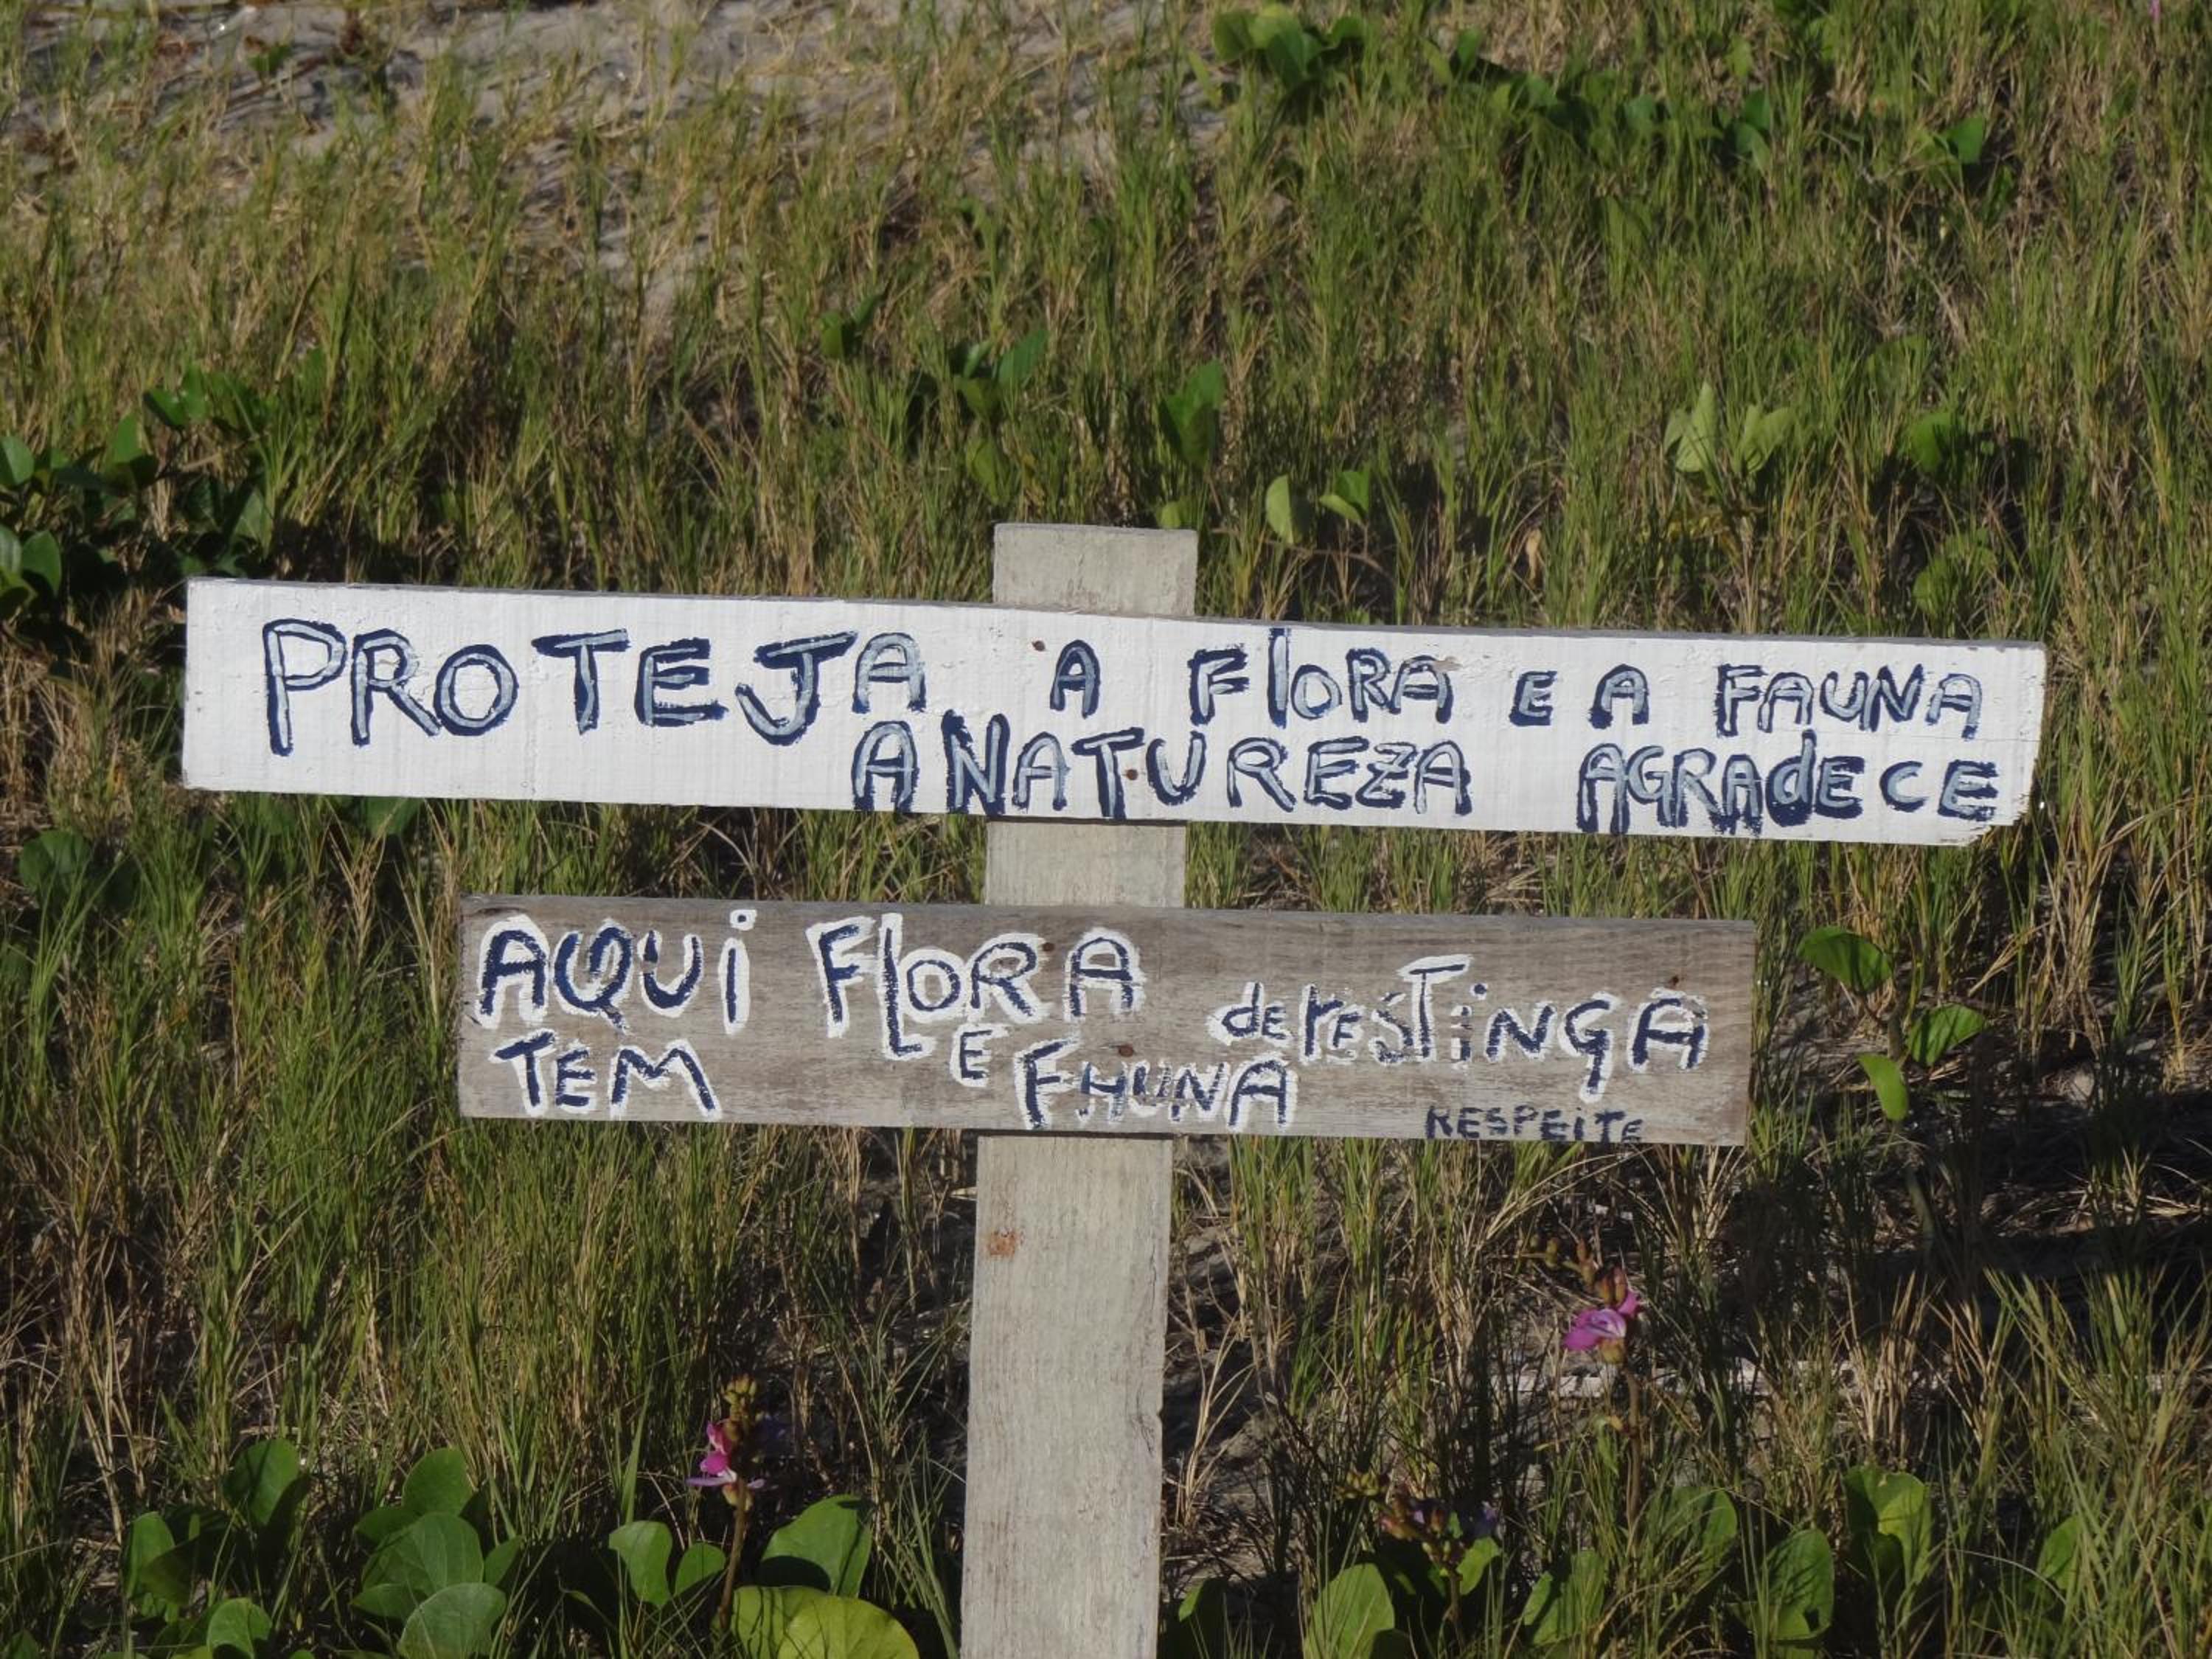 PROTEJA A FlORA E A FAUNA
A NATUREZA AGRAdECE
AQUi FLORA de resTiNGA
TEM E FHUNA
RESPEiTE